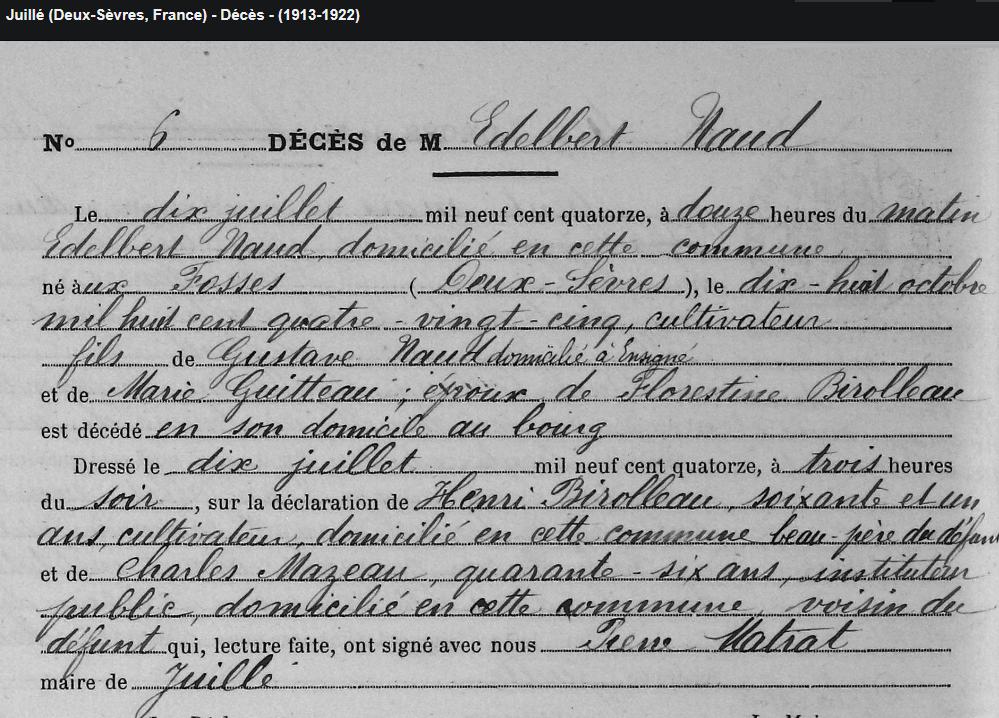 Juillé (Deux-Sèvres, France) - Décès - (1913-1922)
No 6 DÉCÈS de M Edelbert Naud
Le dix juillet mil neuf cent quatorze, à douze heures du matin
Edelbert Naud, domicilié en cette commune
né aux Fosses (Deux-Sèvres), le dix-huit octobre
mil huit cent quatre-vingt-cinq, cultivateur
fils de Gustave Naud domicilié à Ensigné
et de Marie Guitteau, époux de Florestine Birolleau
est décédé en son domicile au bourg
Dressé le dix juillet mil neuf cent quatorze, à trois heures
du soir, sur la déclaration de Henri Birolleau, soixante et un
ans, cultivateur, domicilié en cette commune beau-père du défunt
et de Charles Mazeau, quarante-six ans, instituteur
public, domicilié en cette commune, voisin du
défunt qui, lecture faite, ont signé avec nous Pierre Matrat
maire de Juillé